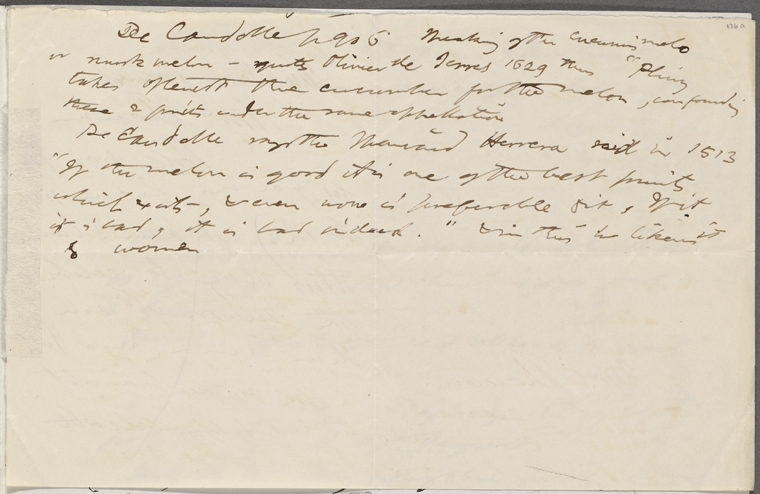 De Candolle p 905 speaking of the cucumis melo
or musk melon – quotes Olivier de Serres 1629 thus "Pliny
takes oftenest the cucumber for the melon, confounding
these 2 fruits under the same appellation
De Candolle says the Herrera said in 1513
"If the melon is good it is one of the best fruits
which exists, & even none is preferable to it, If it
is bad, it is bad indeed." & in this he likens it
to women